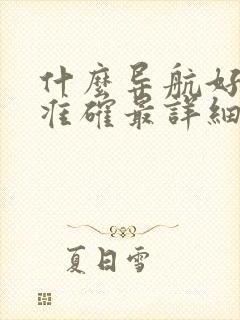 什麼导航好
准確最詳細
夏日雪